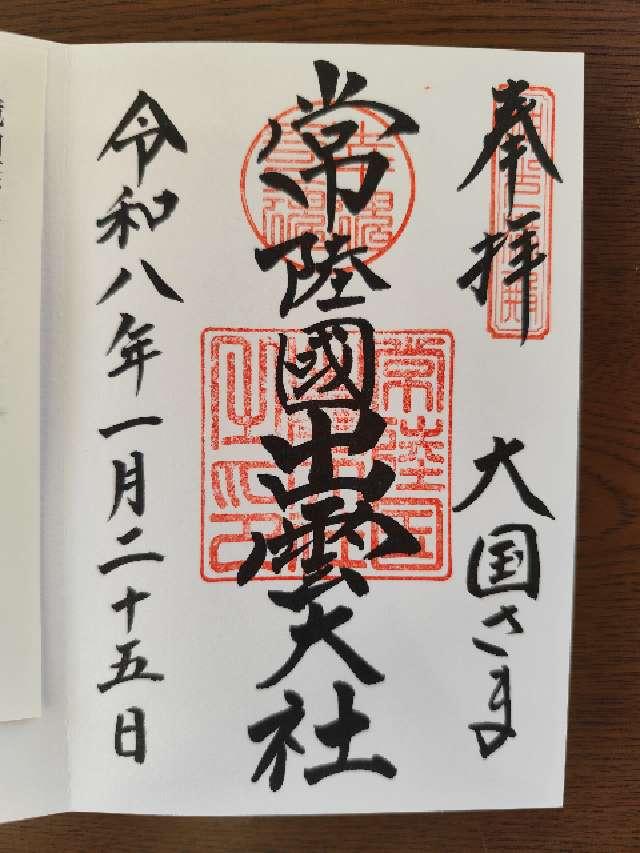 奉拝
大国さま
常陸國出雲大社
令和八年一月二十五日